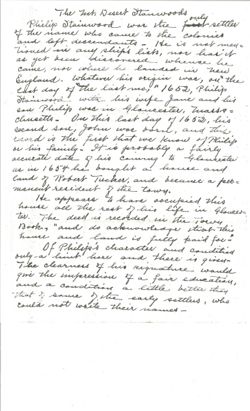 The Mt. Desert Stanwoods
Philip Stainwood was the only settler
of the name who came to the colonies
and left descendants - He is not men-
tioned in any ships list, nor has it
as yet been discovered whence he
came, nor where he landed in New
England. Whatever his origin was, on "the
last day of the last mo," 1652, Philip
Stainwood with his wife Jane and his
son Philip was in Gloucester, Massa-
chusetts. On this last day of 1652, his
second son, John was born, and this
record is the first that we know of Philip
or his family. It is probably a fairly
accurate date of his coming to Gloucester
as in 1654 he bought a house and
land of Robert Tucker, and became a per-
manent resident of the town.
He appears to have occupied this
house all the rest of his life in Glouces-
ter. The deed is recorded in the Town
Book, "and do acknowledge that this
house and land is fully paid for."
Of Philip's character and condition
only a hint here and there is given.
The clearness of his signature would
give the impression of a fair education,
and a condition a little better than
that of some of the early settlers, who
could not write their names -